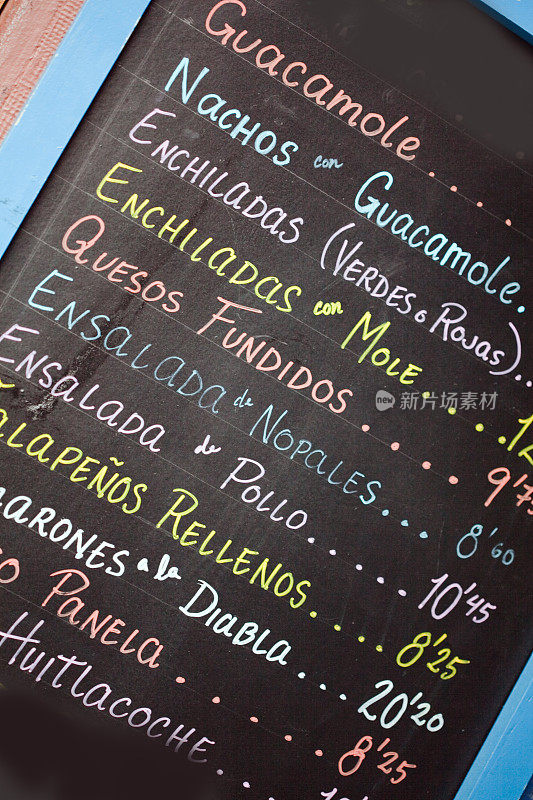 Guacamole.....
Nachos con Guacamole.
Enchiladas (Verdes o Rojas)..
Enchiladas con Mole..... 12
Quesos Fundidos..... 9'75
Ensalada de Nopales... 8'60
Ensalada de Pollo..... 10'45
alapeños Rellenos.... 8'25
marones a la Diabla... 20'20
o Panela...... 8'25
Huitlacoche.... 10
new 新图视觉